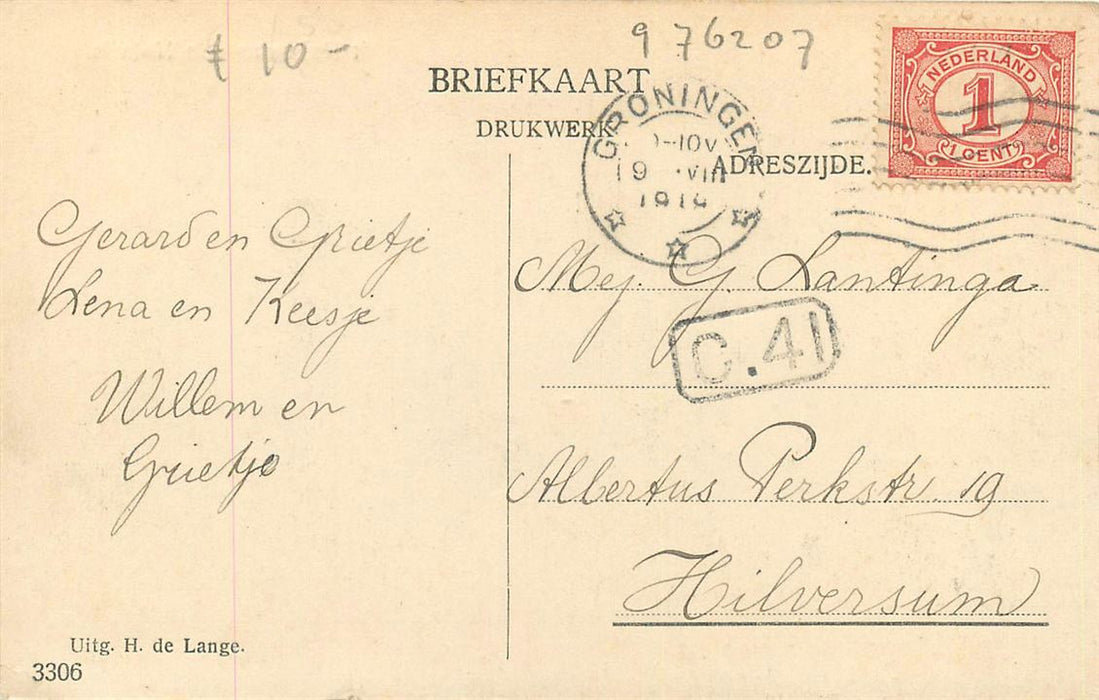 £ 10 -
9 76207
BRIEFKAART
DRUKWERK
ADRESZIJDE.
NEDERLAND
1
1 CENT
GRONINGEN
-10V
19 VIII
Gerard en Grietje
Lena en Keesje
Willem en
Grietje
Mej. G. Lantinga
C.41
Albertus Perkstr 19
Hilversum
Uitg. H. de Lange.
3306